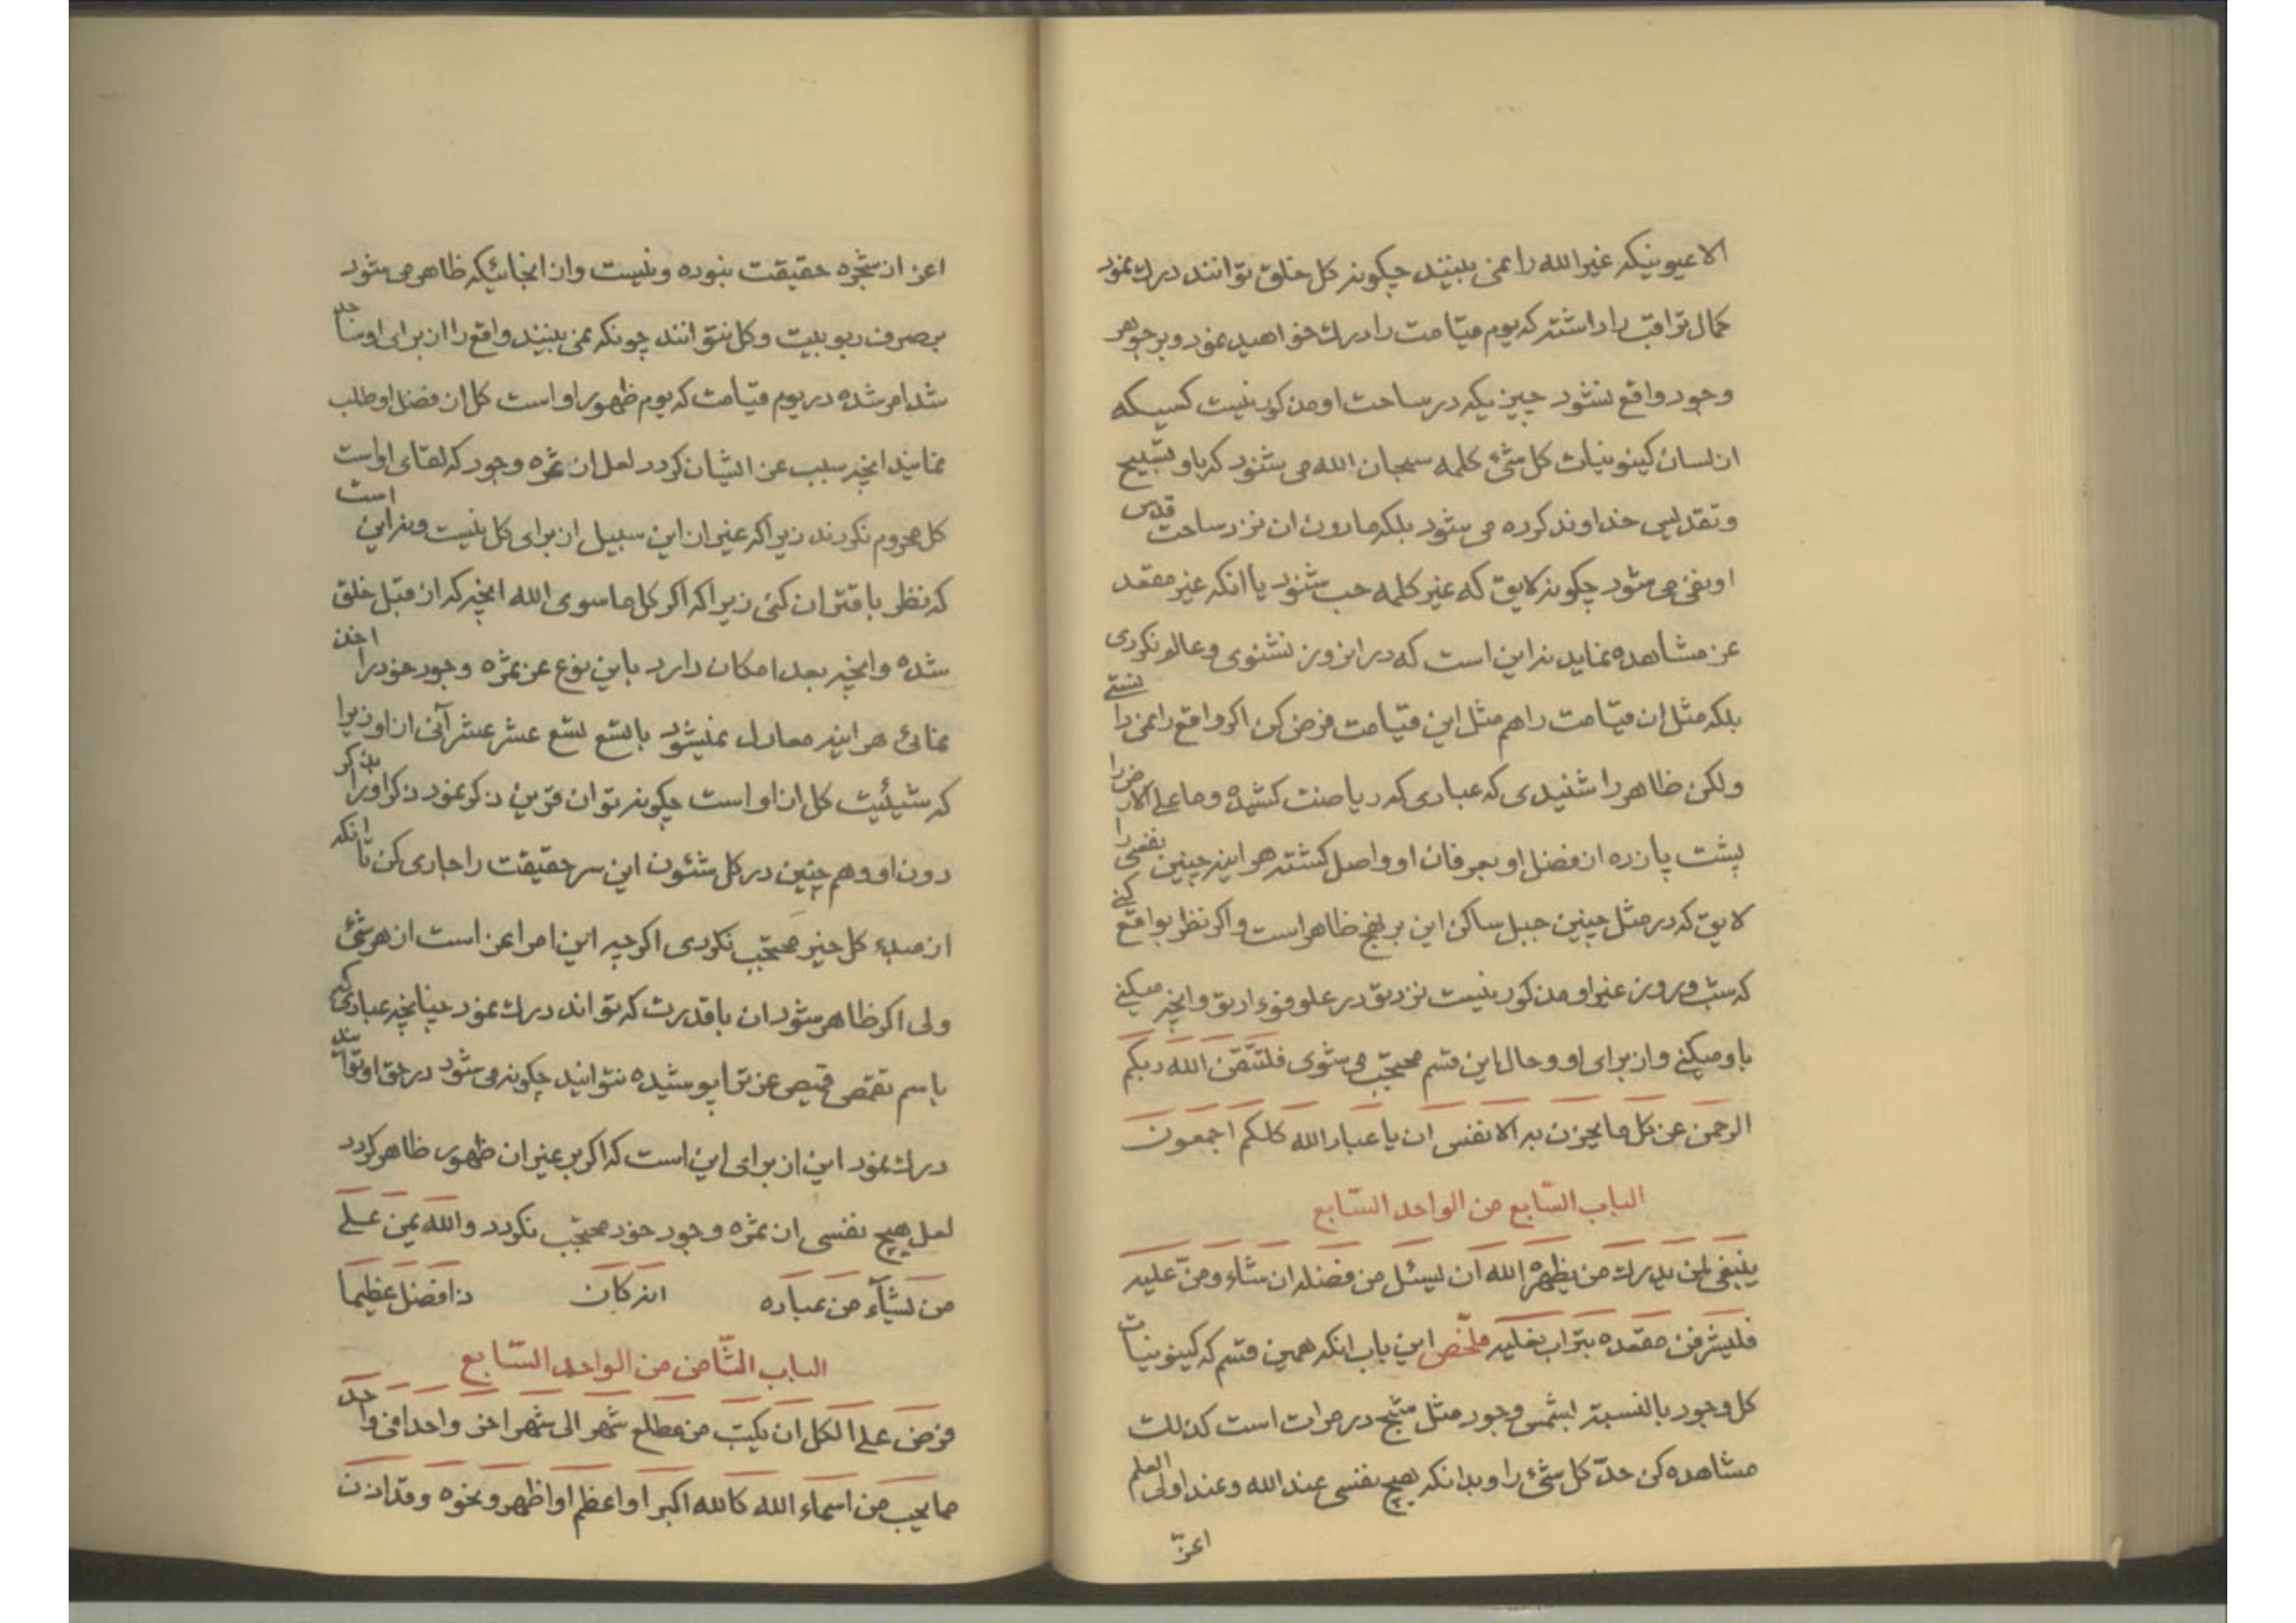 الا عیونیکه غیر الله را نمی بینند چگونه کل خلق توانند درک نمود
کمال تراقب را داشته که یوم قیامت را درک خواهید نمود و بر جوهر
وجود واقع نشود چیزیکه در ساحت او مذکور نیست کسیکه
از لسان کینونیات کل شئ کلمه سبحان الله می شنود که باو تسبیح
و تقدیس خداوند کرده می شود بلکه مادون ان نزد ساحت قدس
او نفی می شود چگونه لایق که غیر کلمه حب شنود یا انکه غیر مقعد
عز مشاهده نماید نه این است که در انروز نشنوی و عالم نگردی
بلکه مثل ان قیامت را هم مثل این قیامت فرض کن اگر واقع را نمی دانستی
ولکن ظاهر را شنیدی که عبادی که ریاضت کشیده و ما علی الارض را
پشت پا زده از فضل او بعرفان او واصل گشته هر اینه چنین نفسی را
لایق که در مثل چنین جبل ساکن این بر نهج ظاهر است و اگر نظر بواقع کنی
که شب و روز غیر او مذکور نیست نزد تو در علو فؤاد تو و انچه میکنی
باو میکنی و از برای او و حال باین قسم محتجب می شوی فلتتقن الله ربکم
الرحمن عن کل ما یحزن به الانفس ان یا عباد الله کلکم اجمعون
الباب السّابع من الواحد السّابع
ینبغی لمن یدرک من یظهره الله ان لیسئل من فضله ان شاء و منّ علیه
فلیشرفن مقعده بتراب نعلیه ملخّص این باب انکه همین قسم که کینونیات
کل وجود بالنسبة بشمس وجود مثل شبح در مرات است کذلک
مشاهده کن حدّ کل شئ را و بدانکه هیچ نفسی عند الله و عند اولی العلم
اعزّ
اعز از شجره حقیقت نبوده و نیست و از انجائیکه ظاهر می شود
بصرف ربوبیت و کل نتوانند چونکه نمی بینند واقع را از برای او ساجد
شد امر شده در یوم قیامت که یوم ظهور او است کل از فضل او طلب
نمایند انچه سبب عز ایشان گردد لعل از ثمره وجود که لقای او است
کل محروم نگردند زیرا که غیر از این سبیل از برای کل نیست و نه این است
که نظر باقتران کنی زیرا که اگر کل ما سوی الله انچه که از قبل خلق
شده و انچه بعد امکان دارد باین نوع عز ثمره وجود خود را اخذ
نمائی هر اینه معادل نمیشود بالتسع تسع عشر عشر آنی از او زیرا
که شیئیت کل از او است چگونه توان قرین ذکر نمود ذکر او را بذکر
دون او و هم چنین در کل شئون این سر حقیقت را جاری کن تا انکه
از مبدء کل خیر محتجب نگردی اگرچه این امر اعز است از هر شئ
ولی اگر ظاهر شود ان با قدرت که تواند درک نمود چنانچه عبادی که
باسم تقمص قمیص عز ترا پوشیده نتوانند چگونه می شود در حق او توانند
درک نمود این از برای این است که اگر بر غیر ان ظهور ظاهر گردد
لعل هیچ نفسی از ثمره وجود خود محتجب نگردد والله یمن علی
من یشآء من عباده انه کان ذا فضل عظیما
الباب الثّامن من الواحد السّابع
فرض علی الکل ان یکتب من مطلع شهر الی شهر اخر واحدا فی واحد
ما یحب من اسماء الله کالله اکبر او اعظم او اظهر و نحوه و قد اذن